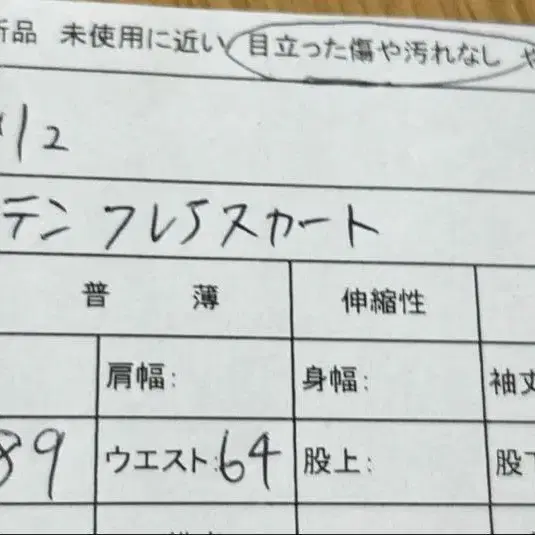 新品 未使用に近い 目立った傷や汚れなし や
12
テン フレアスカート
普 薄 伸縮性
肩幅: 身幅: 袖丈
89 ウエスト:64 股上: 股下